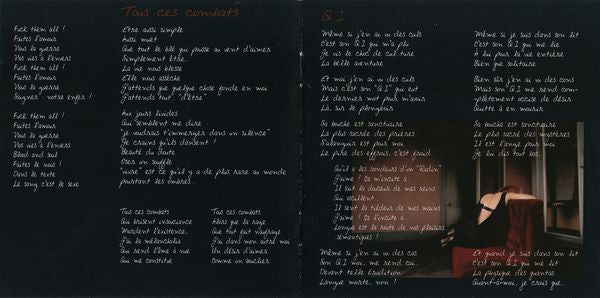 Fuck them all !
Faites l'amour
Vous la guerre
Vos vies à l'envers
Fuck them all !
Faites l'amour
Vous la guerre
Saigner notre enfer !
Fuck them all !
Faites l'amour
Vous la guerre
Vos vies à l'envers
Blood and soul
Faites le nous !
Dans le texte
Le sang c'est le sexe
Tous ces combats
Etre aussi simple
Aussi muet
Que tout le blé qui pousse au vent d'aimer
Simplement être...
La vie nous blesse
Elle nous assèche
J'attends que quelque chose fonde en moi
J'attends tout : "d'être"
Aux jours livides
Qui semblent me dire
"je voudrais t'immerger dans un silence"
Je crains qu'ils dansent !
Beauté du doute
Oser un souffle
"vivre" est ce qu'il y a de plus rare au monde
pourtant les ombres...
Tous ces combats
Qui brisent insouciance
Mordent l'existence,
J'ai la mélancholia
Qui rend l'âme à vue
Qui me constitue
Tous ces combats
Alors que la rage
Que tout fait naufrage
J'ai dans mon autre moi
Un désir d'aimer
Comme un bouclier
Q I
Même si j'en ai vu des culs
C'est son Q.I qui m'a plu
Je vis le choc de cul ture
La belle aventure
Et moi j'en ai vu des culs
Mais c'est son "Q.I" qui eut
Le dernier mot pour m'avoir
Là, sur le plongeoir
Sa bouche est sanctuaire
La plus sacrée des prières
S'alanguir est pour moi
Le pire des effrois, c'est froid
Qu'il a les rondeurs d'un "Rodin"
J'aime ! Ca m'incite à...
Il sait la douceur de mes reins
Qui oscillent...
Il sent la tiédeur de mes mains
J'aime ! Ca l'incite à...
Longue est la route de nos plaisirs
sémantiques !
Même si j'en ai vu des cas
Son Q.I moi, me rend coi
Devant telle érudition
Langue morte, non !
Même si je suis dans son lit
C'est son Q.I qui me lie
A lui pour la vie entière
Bien que solitaire
Bien sûr j'en ai vu des cons
Mais son "Q.I" me rend com-
plètement occise de désir
Quitte à en mourir
Sa bouche est sanctuaire
Le plus sacré des mystères
Il est l'ange pour moi
Je lui dis tout bas...
Et quand je suis dans son lit
C'est son Q.I qui me lit
La physique des quantas
Quant-à-moi, je crois que...